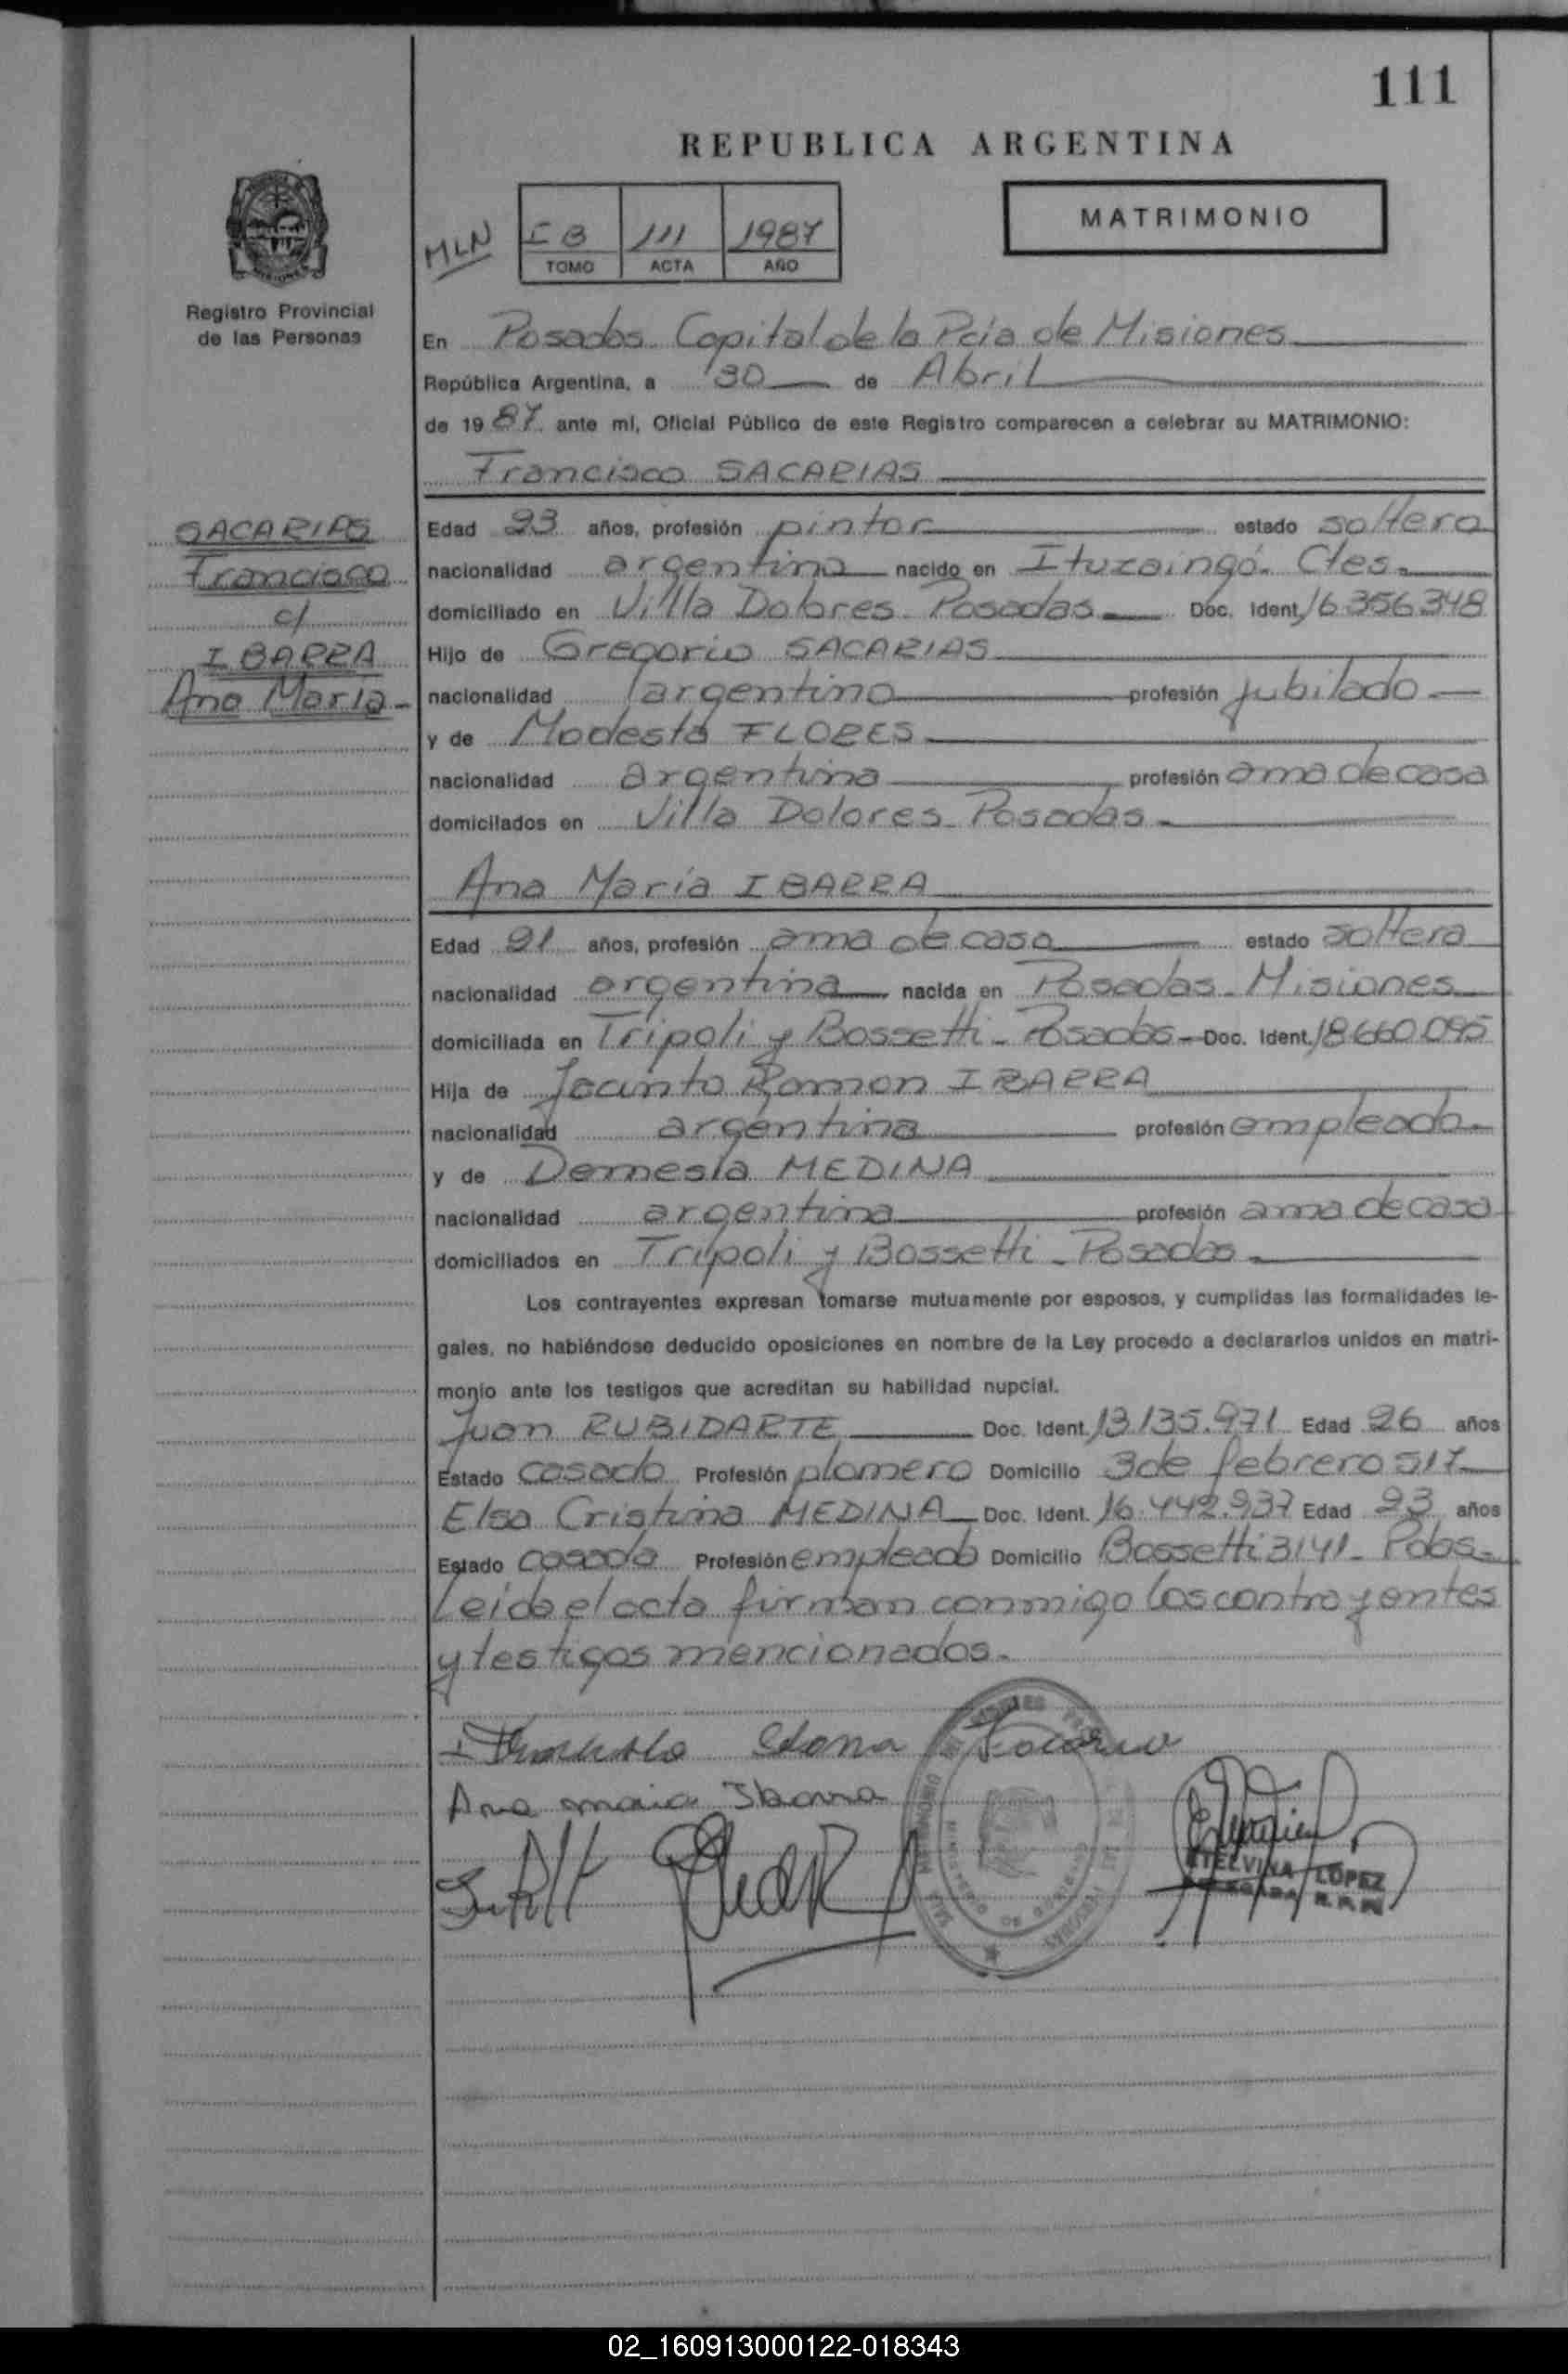 111
REPUBLICA ARGENTINA
MATRIMONIO
MLN
I B 111 1987
TOMO ACTA AÑO
Registro Provincial
de las Personas
En Posadas Capital de la Pcia de Misiones
República Argentina, a 30 de Abril
de 19 87 ante mi, Oficial Público de este Registro comparecen a celebrar su MATRIMONIO:
Francisco SACARIAS
SACARIAS
Francisco
c/
IBARRA
Ana Maria
Edad 23 años, profesión pintor estado soltero
nacionalidad argentina nacido en Ituzaingó. Ctes.
domiciliado en Villa Dolores Posadas Doc. Ident. 16356348
Hijo de Gregorio SACARIAS
nacionalidad argentino profesión jubilado
y de Modesta FLORES
nacionalidad argentina profesión ama de casa
domiciliados en Villa Dolores - Posadas
Ana María IBARRA
Edad 21 años, profesión ama de casa estado soltera
nacionalidad argentina nacida en Posadas - Misiones
domiciliada en Tripoli y Bossetti - Posadas Doc. Ident. 18660095
Hija de Jacinto Ramon IBARRA
nacionalidad argentina profesión empleado
y de MEDINA
nacionalidad argentina profesión ama de casa
domiciliados en Tripoli y Bossetti - Posadas
Los contrayentes expresan tomarse mutuamente por esposos, y cumplidas las formalidades le-
gales, no habiéndose deducido oposiciones en nombre de la Ley procedo a declararlos unidos en matri-
monio ante los testigos que acreditan su habilidad nupcial.
Juan RUBIDARTE Doc. Ident. 13.135.971 Edad 26 años
Estado casado Profesión plomero Domicilio 3 de febrero 517
Elsa Cristina MEDINA Doc. Ident. 16.442.937 Edad 23 años
Estado casada Profesión empleada Domicilio Bossetti 3141 - Pdas
Leida el acta firman conmigo los contrayentes
y testigos mencionados.
Ana maria Ibarra
ETELVINA LOPEZ
02_160913000122-018343